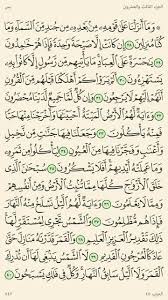 الجزء الثالث والعشرون
يس
۞ وَمَآ أَنزَلْنَا عَلَىٰ قَوْمِهِۦ مِنۢ بَعْدِهِۦ مِن جُندٍ مِّنَ ٱلسَّمَآءِ وَمَا
كُنَّا مُنزِلِينَ ٢٨ إِن كَانَتْ إِلَّا صَيْحَةً وَٰحِدَةً فَإِذَا هُمْ خَٰمِدُونَ
٢٩ يَٰحَسْرَةً عَلَى ٱلْعِبَادِ مَا يَأْتِيهِم مِّن رَّسُولٍ إِلَّا كَانُوا۟ بِهِۦ
يَسْتَهْزِءُونَ ٣٠ أَلَمْ يَرَوْا۟ كَمْ أَهْلَكْنَا قَبْلَهُم مِّنَ ٱلْقُرُونِ أَنَّهُمْ
إِلَيْهِمْ لَا يَرْجِعُونَ ٣١ وَإِن كُلٌّ لَّمَّا جَمِيعٌ لَّدَيْنَا مُحْضَرُونَ
٣٢ وَءَايَةٌ لَّهُمُ ٱلْأَرْضُ ٱلْمَيْتَةُ أَحْيَيْنَٰهَا وَأَخْرَجْنَا مِنْهَا حَبًّا
فَمِنْهُ يَأْكُلُونَ ٣٣ وَجَعَلْنَا فِيهَا جَنَّٰتٍ مِّن نَّخِيلٍ وَأَعْنَٰبٍ
وَفَجَّرْنَا فِيهَا مِنَ ٱلْعُيُونِ ٣٤ لِيَأْكُلُوا۟ مِن ثَمَرِهِۦ وَمَا عَمِلَتْهُ
أَيْدِيهِمْ أَفَلَا يَشْكُرُونَ ٣٥ سُبْحَٰنَ ٱلَّذِى خَلَقَ ٱلْأَزْوَٰجَ
كُلَّهَا مِمَّا تُنۢبِتُ ٱلْأَرْضُ وَمِنْ أَنفُسِهِمْ وَمِمَّا لَا يَعْلَمُونَ
٣٦ وَءَايَةٌ لَّهُمُ ٱلَّيْلُ نَسْلَخُ مِنْهُ ٱلنَّهَارَ فَإِذَا
هُم مُّظْلِمُونَ ٣٧ وَٱلشَّمْسُ تَجْرِى لِمُسْتَقَرٍّ لَّهَا
ذَٰلِكَ تَقْدِيرُ ٱلْعَزِيزِ ٱلْعَلِيمِ ٣٨ وَٱلْقَمَرَ قَدَّرْنَٰهُ مَنَازِلَ حَتَّىٰ
عَادَ كَٱلْعُرْجُونِ ٱلْقَدِيمِ ٣٩ لَا ٱلشَّمْسُ يَنۢبَغِى لَهَآ أَن تُدْرِكَ
ٱلْقَمَرَ وَلَا ٱلَّيْلُ سَابِقُ ٱلنَّهَارِ وَكُلٌّ فِى فَلَكٍ يَسْبَحُونَ ٤٠
٤٤٢